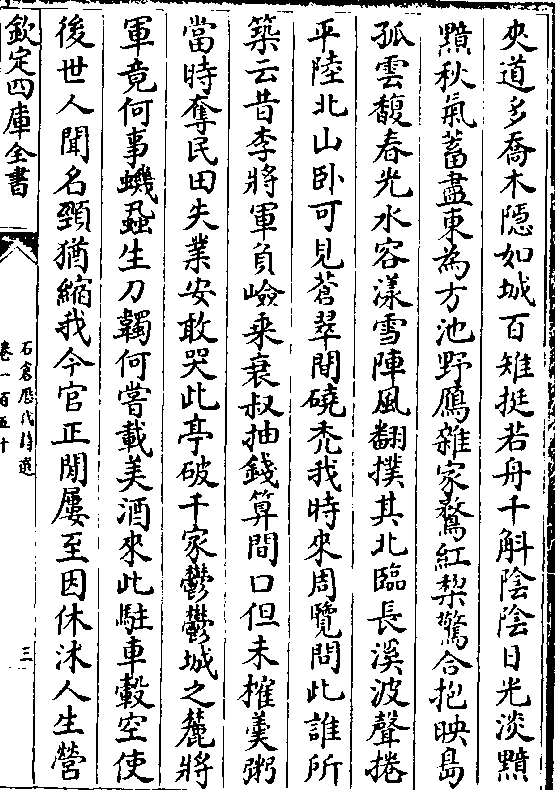 夾道多喬木隠如城百雉挺若舟千斛陰陰日光淡黯
黯秋氣蓄盡東為方池野鴈雜家鶩紅棃驚合抱映島
孤雲馥春光水容漾雪陣風翻撲其北臨長溪波聲捲
平陸北山卧可見蒼翠間磽秃我時來周覽問此誰所
築云昔李將軍負嶮乘衰叔抽錢算間口但未榷羮粥
當時奪民田失業安敢哭此亭破千家鬱鬱城之麓將
軍竟何事蟣蝨生刀韣何嘗載美酒來此駐車轂空使
後世人聞名頸猶縮我今官正閒屢至因休沐人生營
欽定四庫全書
石倉歴代詩選
卷一百五十
三